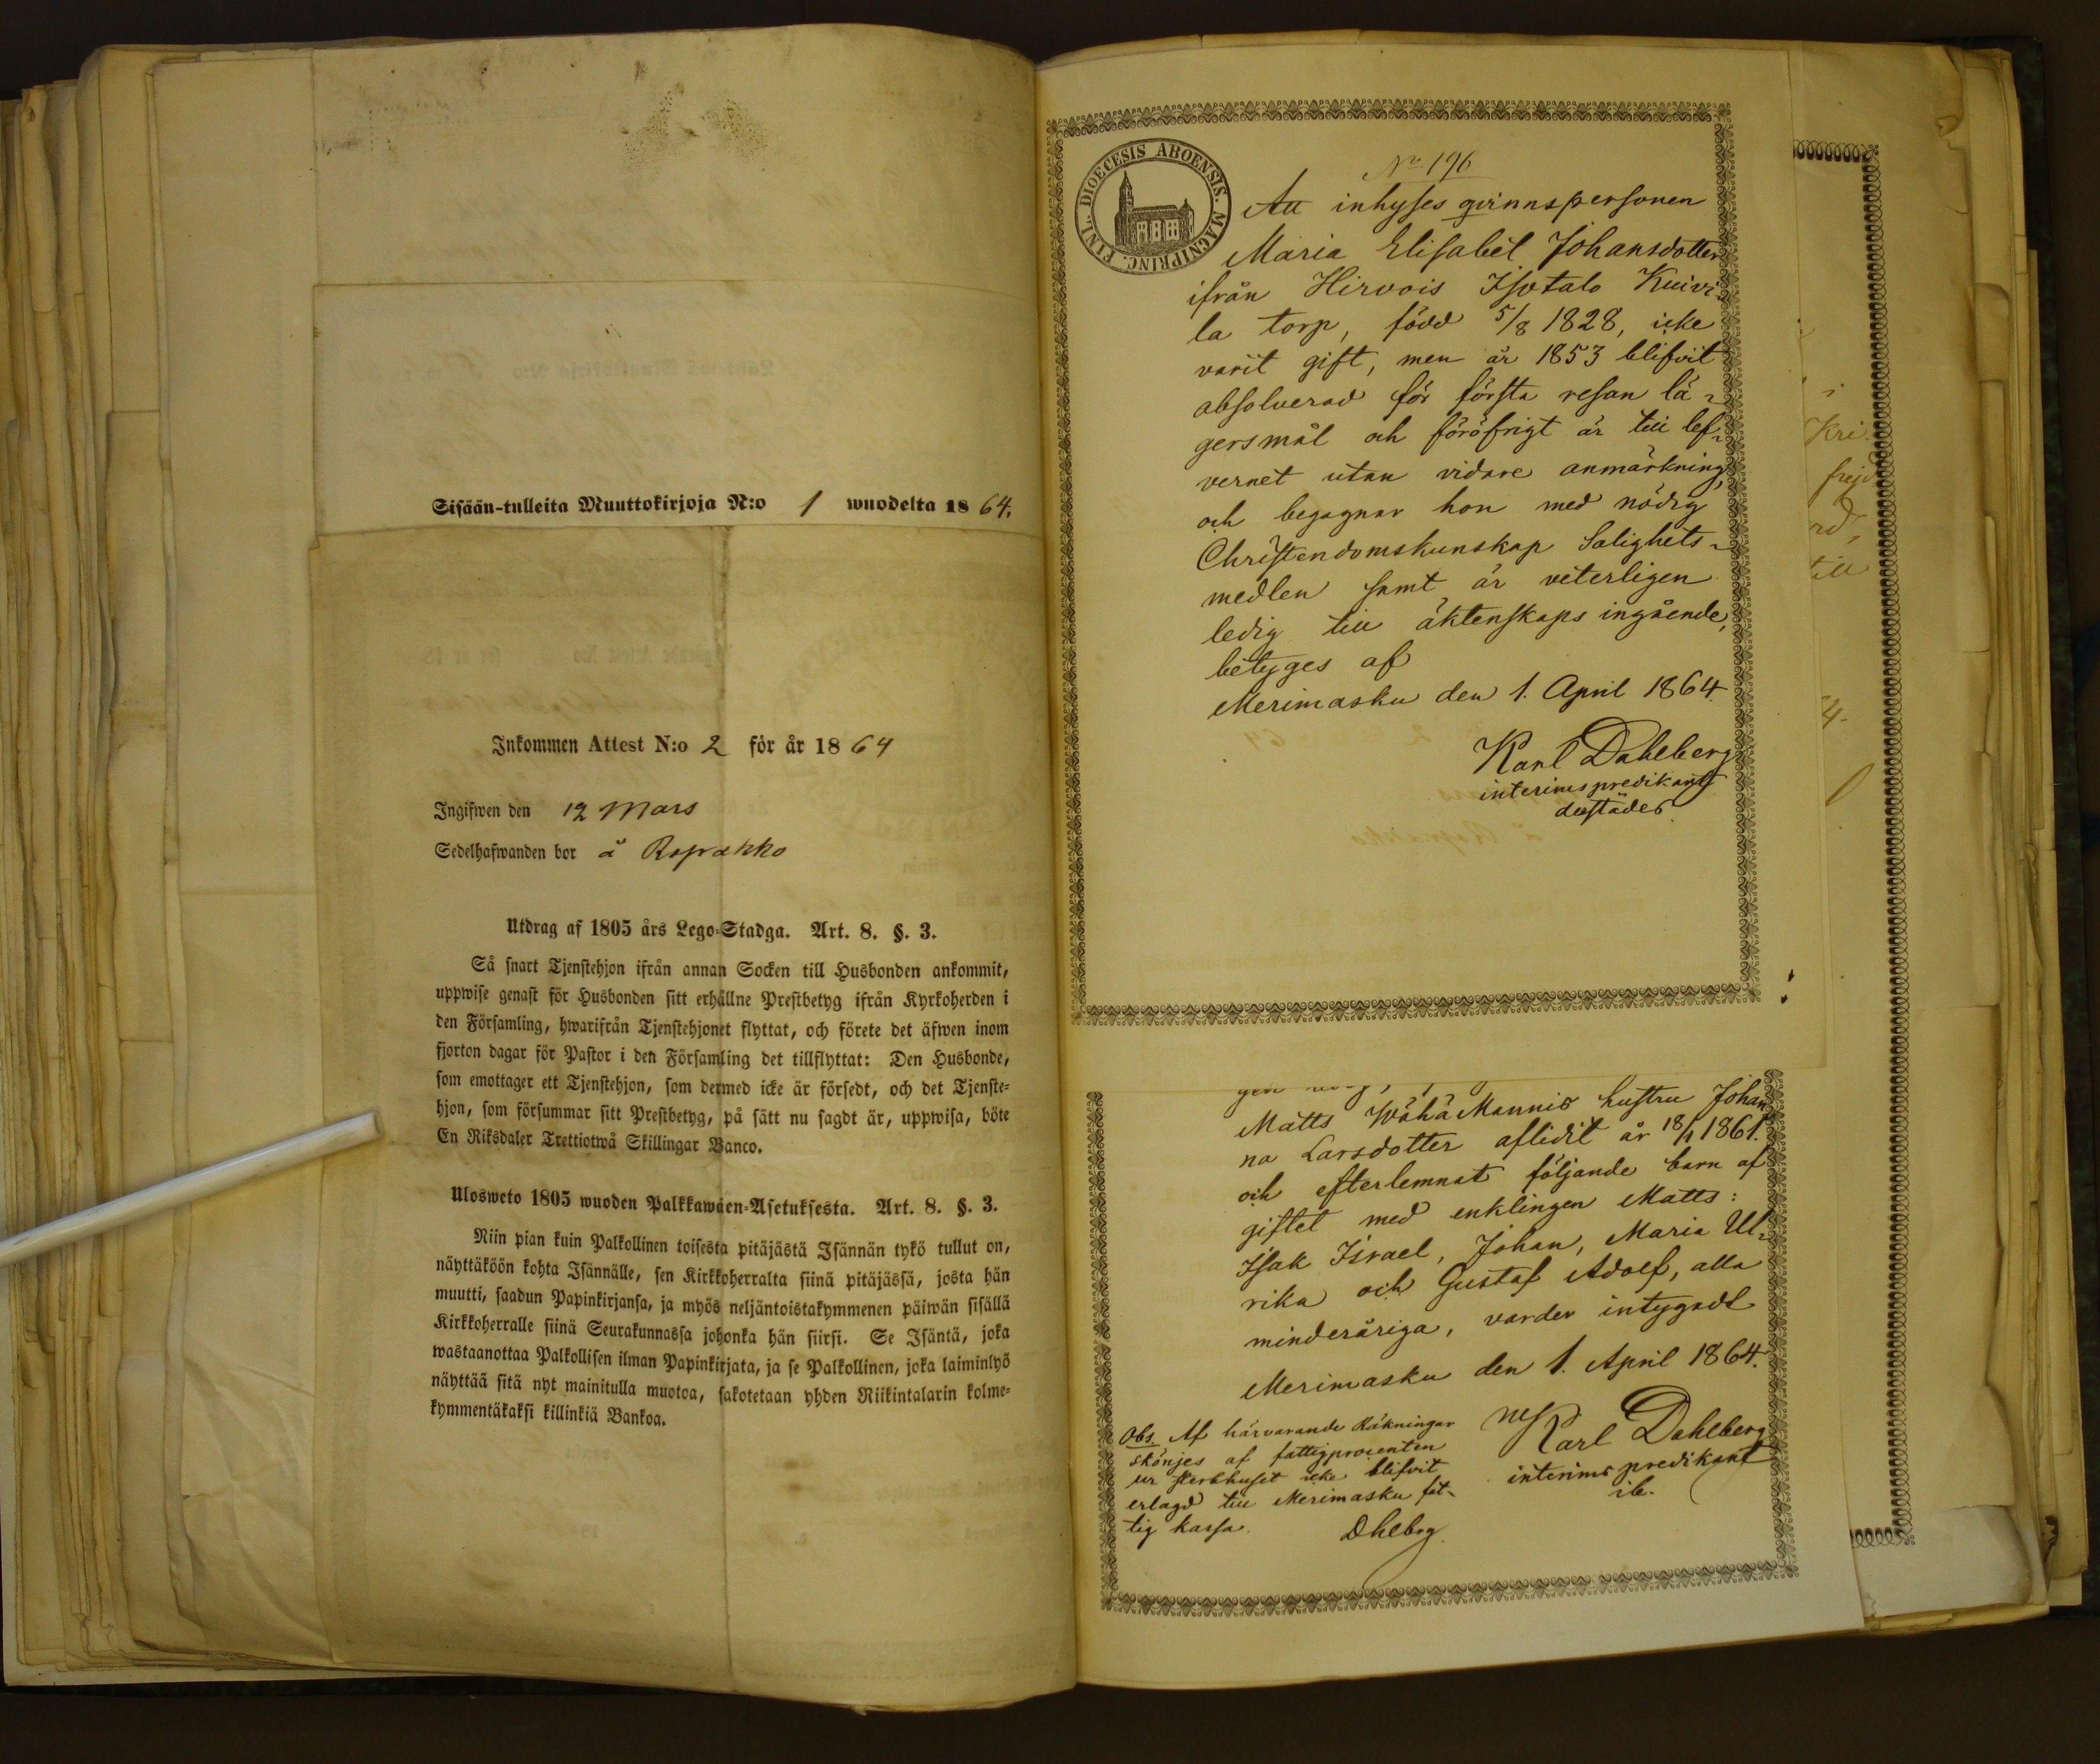 Sisään-tulleita Muuttokirjoja N:o 1 wuodelta 1864.
Inkommen Attest N:o 2 för år 1864
Ingifwen den 12 Mars
Sedelhafwanden bor å Ropakko
Utdrag af 1805 års Lego-Stadga. Art. 8. §. 3.
Så snart Tjenstehjon ifrån annan Socken till Husbonden ankommit,
uppwise genast för Husbonden sitt erhållne Prestbetyg ifrån Kyrkoherden i
den Församling, hwarifrån Tjenstehjonet flyttat, och förete det äfwen inom
fjorton dagar för Pastor i den Församling det tillflyttat: Den Husbonde,
som emottager ett Tjenstehjon, som dermed icke är försedt, och det Tjenste-
hjon, som försummar sitt Prestbetyg, på sätt nu sagdt är, uppwisa, böte
En Riksdaler Trettiotwå Skillingar Banco.
Ulosweto 1805 wuoden Palkkawäen-Asetuksesta. Art. 8. §. 3.
Niin pian kuin Palkollinen toisesta pitäjästä Isännän tykö tullut on,
näyttäköön kohta Isännälle, sen Kirkkoherralta siinä pitäjässä, josta hän
muutti, saadun Papinkirjansa, ja myös neljäntoistakymmenen päiwän sisällä
Kirkkoherralle siinä Seurakunnassa johonka hän siirsi. Se Isäntä, joka
wastaanottaa Palkollisen ilman Papinkirjata, ja se Palkollinen, joka laiminlyö
näyttää sitä nyt mainitulla muotoa, sakotetaan yhden Riikintalarin kolme-
kymmentäkaksi killinkiä Bankoa.
FINL. DIOECESIS ABOENSIS. MAGNIPRINC.
No 196
Att inhyses qvinnspersonen
Maria Elisabet Johansdotter
ifrån Hirvois Isotalo Kuivi-
la torp, född 5/8 1828, icke
varit gift, men år 1853 blifvit
absolverad för första resan lä-
gersmål och föröfrigt är till lef-
vernet utan vidare anmärkning,
och begagnar hon med nödig
Christendomskunskap Salighets-
medlen samt är veterligen
ledig till äktenskaps ingående,
betyges af
Merimasku den 1. April 1864.
Karl Dahlberg
interimspredikant
dustädes.
Matts Wähä Mannis hustru Johan-
na Larsdotter aflidit år 18/1 1861.
och efterlemnat följande barn af
giftet med enklingen Matts:
Isak Israel, Johan, Maria Ul-
rika och Gustaf Adolf, alla
minderåriga, varder intygadt
Merimasku den 1. April 1864.
Karl Dahlberg
interims predikant
ib.
Obs. Af härvarande Räkningar
skönjes af fattigprocenten
ur sterbhuset icke blifvit
erlagd till Merimasku fat-
tig kassa.
Dhlbrg.
Kri
frejd
rd,
till
4.